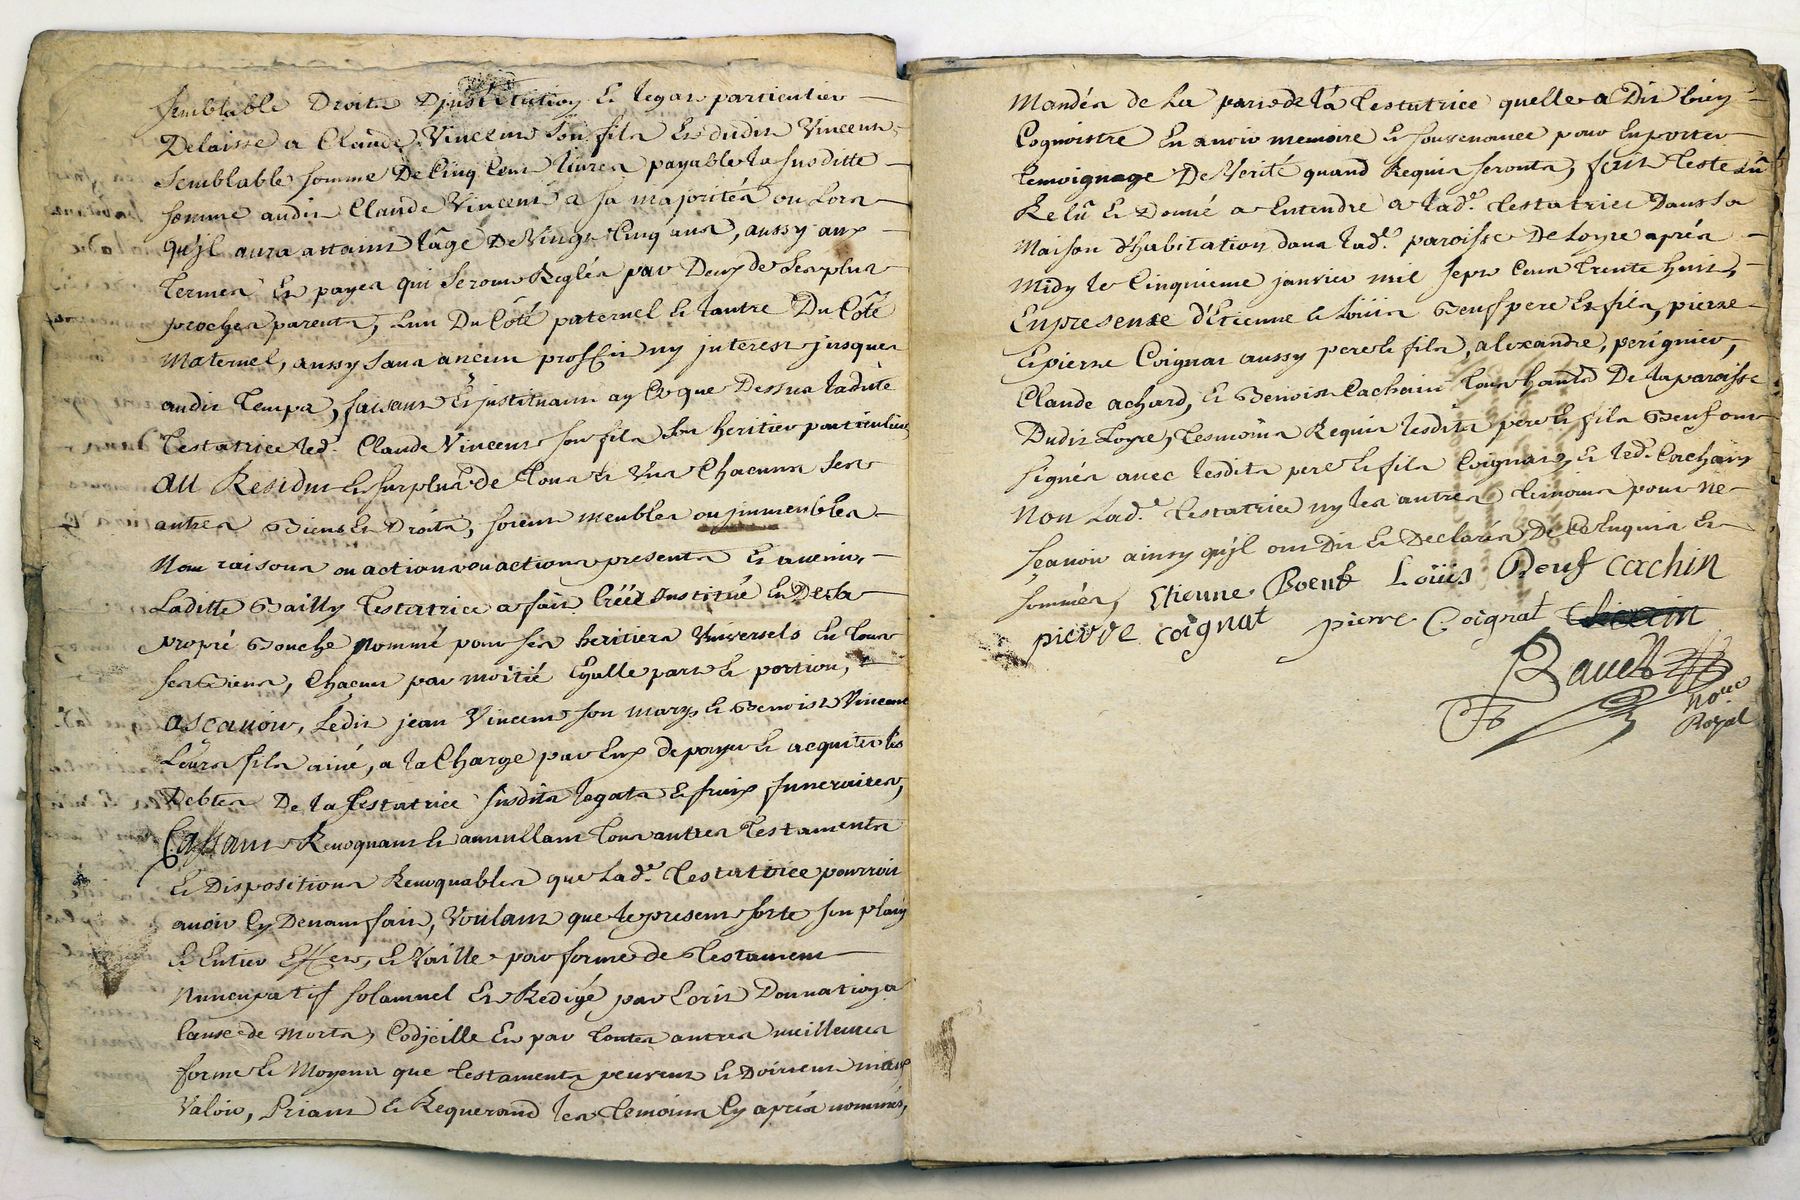 semblable Droits Djnstitution et legat particulier
Delaisse a Claude Vincent son fils et dudit Vincent
semblable somme De Cinq Cent livres payable la susditte
somme audit Claude Vincent a sa majorités ou Lors
qu'jl aura attaint lâge De Vingt Cinq ans, aussy aux
termes et payes qui seront Reglés par Deux de ses plus
proches parents, Lun Du Côté paternel et lautre Du Côté
maternel, aussy sans aucun proffit ny jnterest jusques
audit temps, faisant et jnstituant ay Ce que Dessus ladite
testatrice led. Claude Vincent son fils son heritier particulier
au Residu et surplus de tous et Vns Chacuns ses
autres Biens et Droits, soient meubles ou jmmeubles
Nom raisons ou actions ou actions presents et avenir,
Laditte Bailly testatrice a fait Créé Institué et De sa
propre Bouche Nommé pour ses heritiers Vniversels en tous
ses Biens, Chacun par moitié Egalle part et portion,
ascavoir, Ledit jean Vincent son mary et Benoist Vincent
Leurs fils ainé, a la Charge par Eux de payer et acquiter les
Debtes De la testatrice susdits legats et fraix funeraires,
Cassant Revoquant et annullant tous autres testaments
et Dispositions Revoquables que Lad.e testatrice pourroit
avoir Cy Devant fait, Voulant que le present sorte son plain
et Entier Effet, et Vaille par forme de testament
Nuncupatif solamnel et Redigé par Ecrit Donnation a
Cause de morts, Codjcille et par toutes autres meilleures
forme et Moyens que testaments peuvent et Doivent mieux
Valoir, Priant et Requerand les temoins Cy aprés nommés,
Mandés de La part de la testatrice quelle a Dit bien
Cognoistre En avoir memoire et souvenance pour En porter
temoignage De Verité quand Requis seronts, fait Leste Lû
Re Lû et Donné a Entendre a lad.e testatrice Dans sa
Maison d'habitation dans lad.e paroisse De Loyre aprés
Midy le Cinquieme janvier mil sept Cent trente huit,
En presense d'Etienne et Loüis Beuf pere et fils, pierre
et pierre Coignat aussy pere et fils, alexandre, perignier,
Claude achard, et Benoist Cachain tous hants De la paroisse
Dudit Loyre, tesmoins Requis lesdits pere et fils Beuf ont
signés avec lesdits pere et fils Coignat, et led. Cachain
Non Lad.e testatrice ny les autres temoins pour Ne
sçavoir ainsy qu'jl ont Dit et Declarés De Ce Enquis et
sommés, Etienne Boeuf Loüis Beuf cachin
pierre coignat pierre Coignat
No.re
Royal